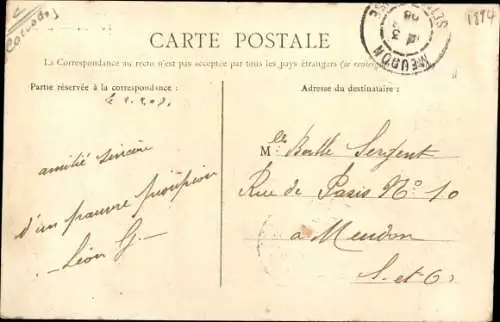 (Calvados)
1894
CARTE POSTALE
La Correspondance au recto n'est pas acceptée par tous les pays étrangers (se renseigner
Partie réservée à la correspondance :
Adresse du destinataire :
amitié sincère
d'un pauvre
Léon G.
Mlle Berthe Sergent
Rue de Paris No 10
a Meudon
S. et O.
MEUDON